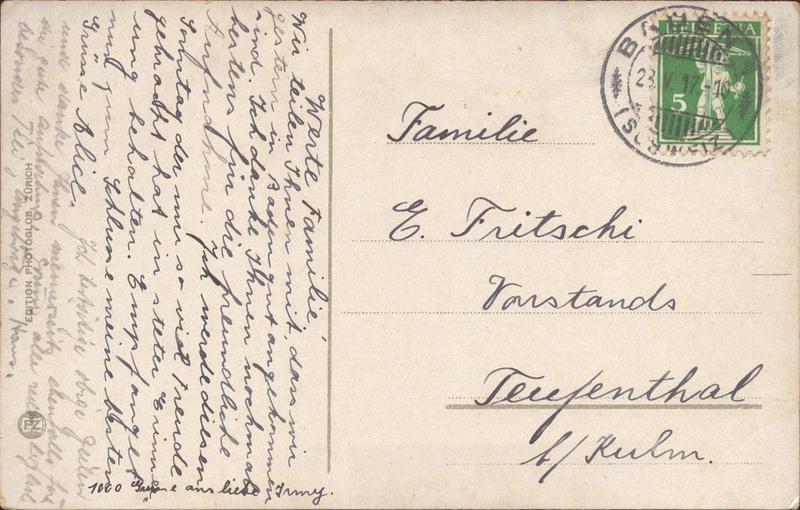 Werte Familie!
Wir teilen Ihnen mit, dass wir
gestern in Baden gut angekommen
sind. Ich danke Ihnen nochmals
herzlichst für die freundliche
Aufnahme. Ich werde diesen
Sonntag der mir so viel Freude
gemacht hat in steter Erinner
ung behalten. Empfanget
nun zum Schlusse meine besten
Grüsse Alice.
Ich bestätige obige Zeilen
und danke Ihnen meinerseits ebenfalls für
die gute Aufnahme
Hans.
1000 Grüsse aus liebe Irmy.
EDITION PHOTOGLOB, ZÜRICH
HELVETIA
5
BADEN
23.V.17.-10
(SCHWEIZ)
Familie
E. Fritschi
Vorstands
Teufenthal
b/Kulm.